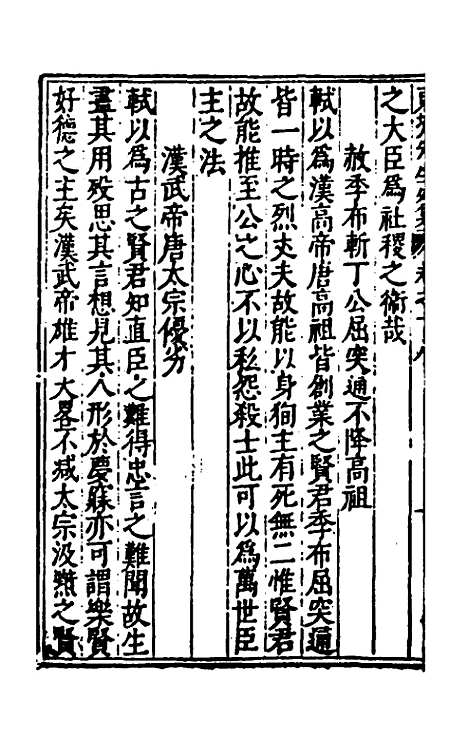 之大臣爲社稷之衛哉
赦季布斬丁公屈突通不降高祖
軾以爲漢高帝唐高祖皆創業之賢君季布屈突通
皆一時之烈丈夫故能以身徇主有死無二惟賢君
故能推至公之心不以私怨殺士此可以爲萬世臣
主之法
漢武帝唐太宗優劣
軾以爲古之賢君知直臣之難得忠言之難聞故生
盡其用歿思其言想見其人形於夢寐亦可謂樂賢
好德之主矣漢武帝雄才大畧不减太宗汲黯之賢